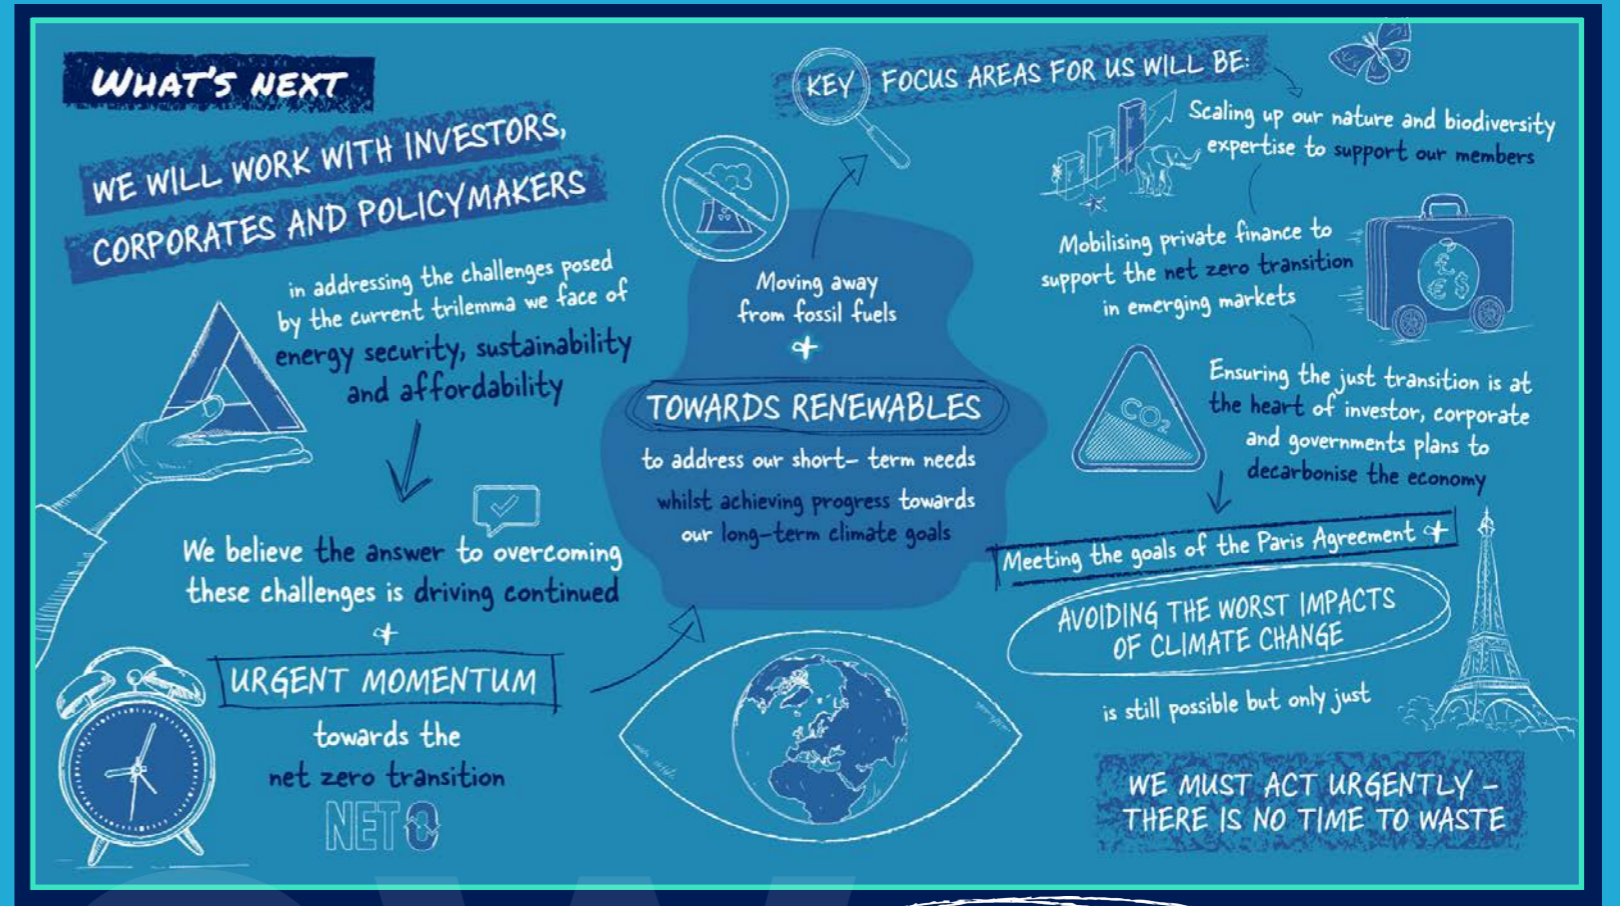 WHAT'S NEXT
WE WILL WORK WITH INVESTORS,
CORPORATES AND POLICYMAKERS
in addressing the challenges posed
by the current trilemma we face of
energy security, sustainability
and affordability
We believe the answer to overcoming
these challenges is driving continued
+
URGENT MOMENTUM
towards the
net zero transition
NET 0
Moving away
from fossil fuels
+
TOWARDS RENEWABLES
to address our short- term needs
whilst achieving progress towards
our long-term climate goals
KEY FOCUS AREAS FOR US WILL BE:
Scaling up our nature and biodiversity
expertise to support our members
Mobilising private finance to
support the net zero transition
in emerging markets
£
€ $
Ensuring the just transition is at
the heart of investor, corporate
and governments plans to
decarbonise the economy
CO₂
Meeting the goals of the Paris Agreement +
AVOIDING THE WORST IMPACTS
OF CLIMATE CHANGE
is still possible but only just
WE MUST ACT URGENTLY –
THERE IS NO TIME TO WASTE